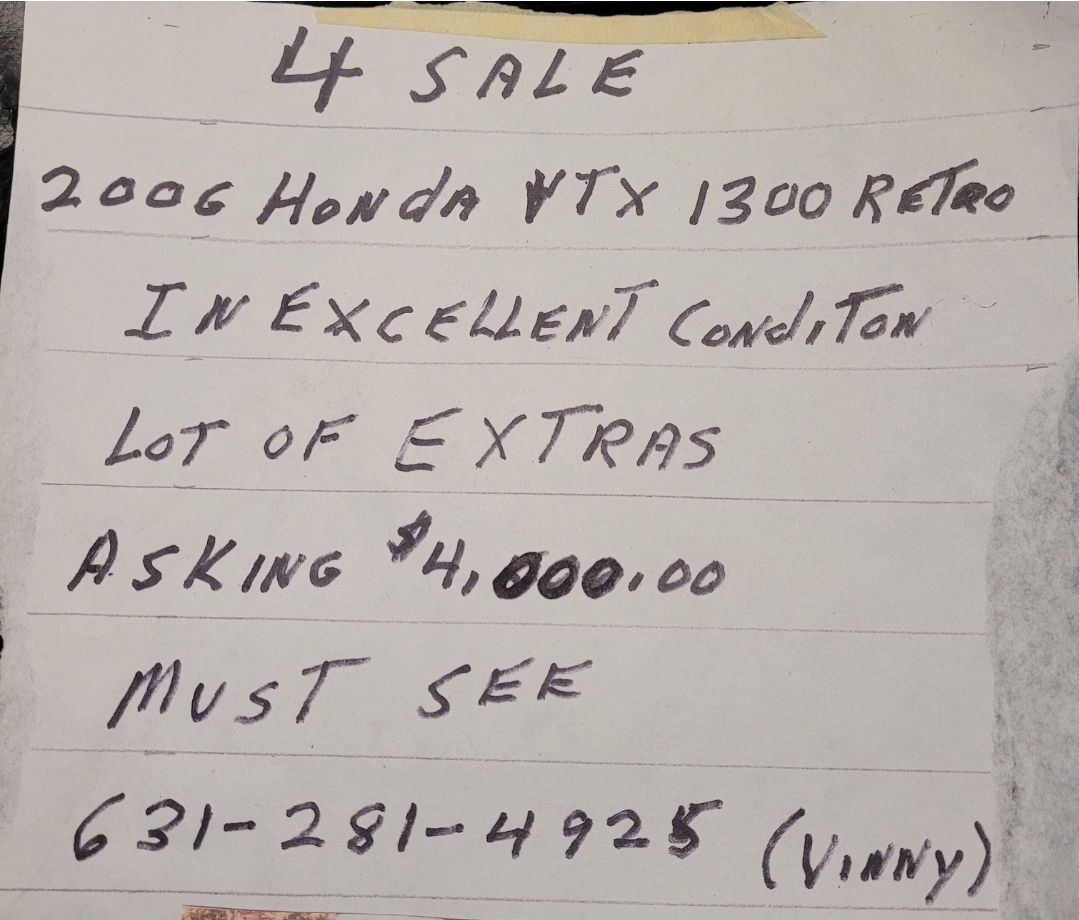 4 SALE
2006 HONdA VTX 1300 RETRO
IN EXCELLENT CONdiTON
LOT OF EXTRAS
ASKING $4,000.00
MUST SEE
631-281-4925 (ViNNY)